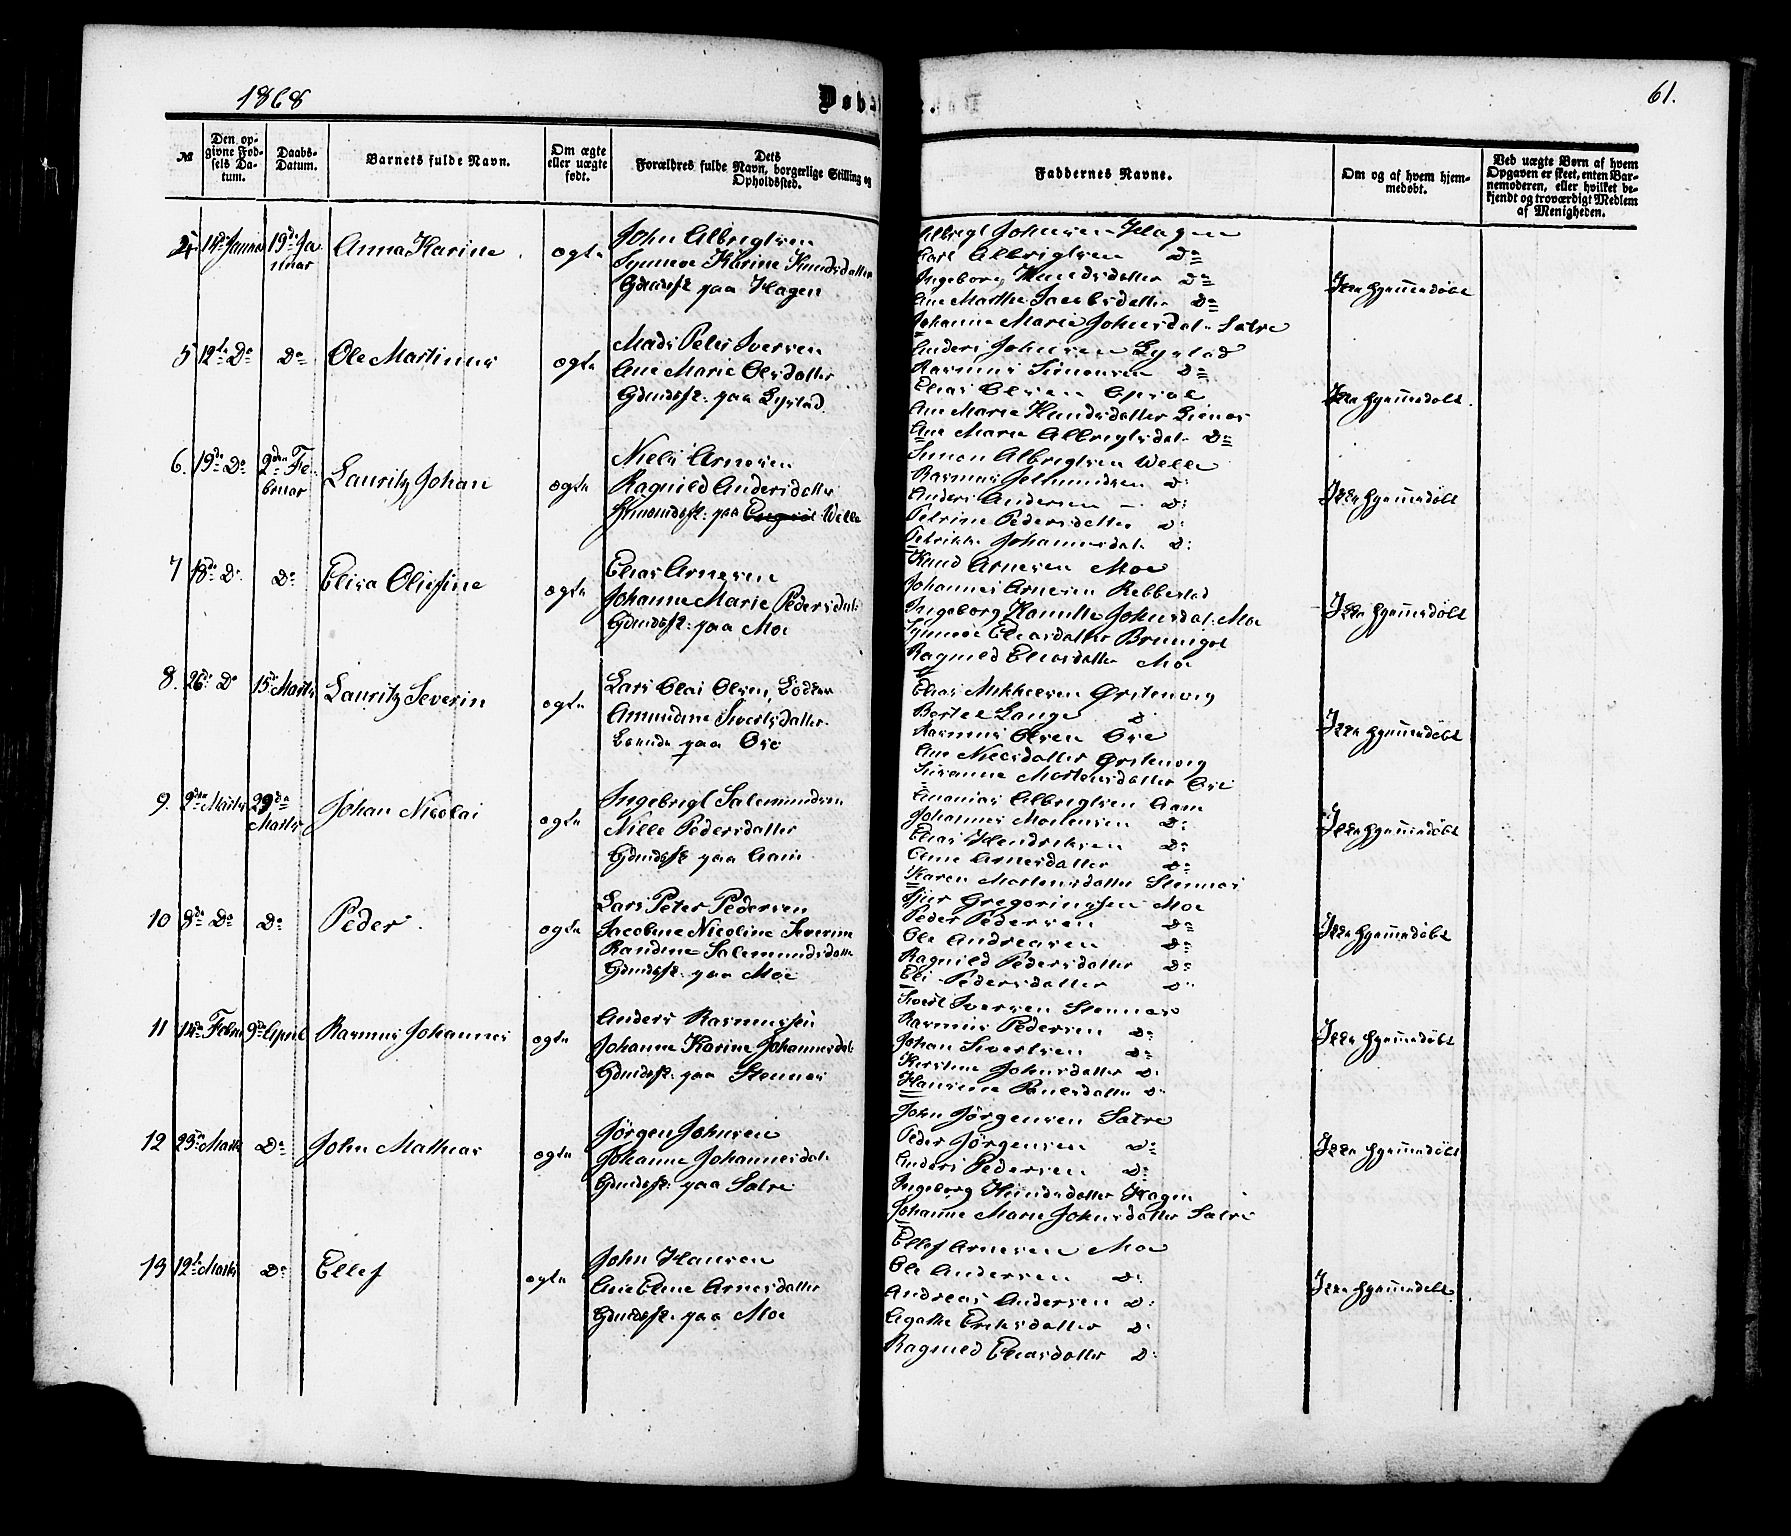 1868
Døbte
61.
№
Den opgivne Fødsels Datum.
Daabs-Datum.
Barnets fulde Navn.
Om ægte eller uægte født.
Dets Forældres fulde Navn, borgerlige Stilling og Opholdssted.
Faddernes Navne.
Om og af hvem hjemmedøbt.
Ved uægte Børn af hvem Opgaven er skeet, enten Barnemoderen, eller hvilket bekjendt og troværdigt Medlem af Menigheden.
4 Januar 19de Januar Anna Karine ægte
John Albrigtsen
Synnøe Karine Knudsdatter
Gdmdsfk paa Hagen
Albrigt Johnsen Hagen
Carl Albrigtsen Do
Ingeborg Knudsdatter Do
Ane Marthe Jacobsdatter Do
Johanne Marie Johnsdat. Sætre
Ikke hjemmedøbt
5 12te Do Do Ole Martinus ægte
Mads Peter Iversen
Ane Marie Olsdatter
Gdmdsfk: paa Lystad
Anders Johnsen Lystad
Rasmus Simonsen Do
Elias Olsen
Ane Marie Knudsdatter
Ane Marie Albrigtsdat. Do
Ikke hjemmedøbt.
6. 19de Do 2den Februar Lauritz Johan ægte
Niels Arnesen
Ragnild Andersdatter
paa Welle
Simon Albrigtsen Welle
Rasmus D:
Anders Andersen — D:
Petrine Pedersdatter D:
Petrikke Johannesdat. D:
Ikke hjemmedøbt
7 18de D: Do Elisa Olufine ægte
Elias Arnesen
Johanne Marie Pedersdat:
Gdmdsfk: paa Moe
Knud Arnesen Moe
Johannes Arnesen Rebbestad
Ingeborg Johnsdat. Moe
Synnøe Eliasdatter
Ragnild Eliasdatter Moe
Ikke hjemmedøbt
8. 26: Do 15de Marts Lauritz Severin ægte
Lars Olai Olsen,
Amundine Sivertsdatter
paa Ose
Elias Mikkelsen Ørstenvig
Bertel Lange D:
Rasmus Olsen Ose
Ane Nielsdatter Ørstenvig
Susanne Mortensdatter Ose
Ikke hjemmedøbt
9. 2den Marts 29de Marts Johan Nicolai ægte
Ingebrigt Salemundsen
Nille Pedersdatter
Gdmdsfk paa Aam
Ananias Albrigtsen Aam
Johannes Mortensen D:
Elias Hendriksen Do
Ane Arnesdatter Do
Karen Mortensdatter Stennes
Ikke hjemmedøbt
10 8de Do Do Peder ægte
Lars Peter Pedersen
Jacobine Nicoline Severine
Randine Salemundsdatter
Gdmdsfk: paa Moe
Gregoriussen Moe
Peder Pedersen Do
Ole Andreasen Do
Ragnild Pedersdatter Do
Eli Pedersdatter D:
Ikke hjemmedøbt
11 Febru 9de April Rasmus Johannes ægte
Anders Rasmussen
Johanne Karine Johannesdat:
Gdmdsfk: paa Stennes
Sivert Iversen Stennes
Rasmus Pedersen Do
Johan Sivertsen Do
Kirstine Johnsdatter D:
Hansine D:
Ikke hjemmedøbt
12 25de Marts Do John Mathias ægte
Jørgen Johnsen
Johanne Johannesdat:
Gdmdsfk: paa Sætre
John Jørgensen Sætre
Peder Jørgensen Do
Anders Pedersen D:
Ingeborg Knudsdatter Hagen
Johanne Marie Johnsdatter Sætre
Ikke hjemmedøbt
13 12te Marts Do Ellef ægte
John Hansen
Ane Eline Arnesdatter
Gdmdsfk: paa Moe
Ellef Arnesen Moe
Ole Andersen D:
Andreas Andersen D:
Agathe Eriksdatter D:
Ragnild Eliasdatter D:
Ikke hjemmedøbt.